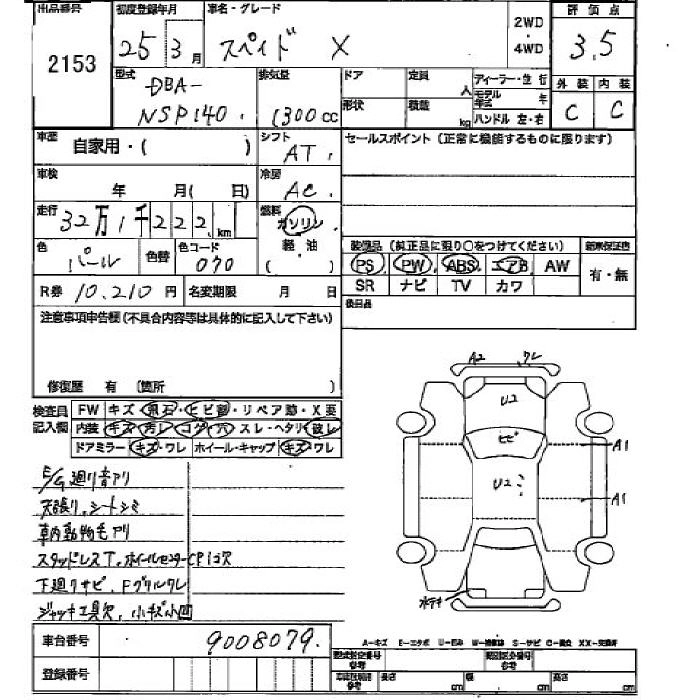 出品番号 初度登録年月 車名・グレード 2WD ・ 4WD 評価点
2153 25年3月 スペイド X 3.5
型式 DBA- NSP140 排気量 1300cc ドア 定員 人 形状 積載 kg ディーラー・並行 モデル年式 年 ハンドル 左・右 外装 内装
C C
車歴 自家用・( ) シフト AT セールスポイント(正常に機能するものに限ります)
車検 年 月( 日) 冷房 AC
走行 32万1千222km 燃料 ガソリン
色 パール 色替 色コード 070 軽・油 ( ) 装備品(純正品に限り○をつけてください) 新車保証書
PS PW ABS エアB AW 有・無
R券 10,210円 名変期限 月 日 SR ナビ TV カワ
注意事項申告欄(不具合内容等は具体的に記入して下さい) 後日品
修復歴 有 (箇所 )
A2 ワレ
検査員 FW キズ・飛石・ヒビ割・リペア跡・X要 U2
記入欄 内装 キズ・汚レ・コゲ・穴・スレ・ヘタリ・破レ ヒビ
ドアミラー キズ・ワレ ホイール・キャップ キズ・ワレ A1
E/G廻り音アリ U2
天張り、シートシミ A1
車内動物毛アリ
スタッドレスT、ホイールセンターCP1コ欠
下廻りサビ、Fグリルワレ
ジャッキ工具欠、小キズ小凹
車台番号 9008079 A-キズ E-エクボ U-凹み W-補修跡 S-サビ C-腐食 XX-交換済
型式指定番号 参考 類別区分番号 参考
登録番号 車庫証明用 参考 長さ cm 幅 cm 高さ cm